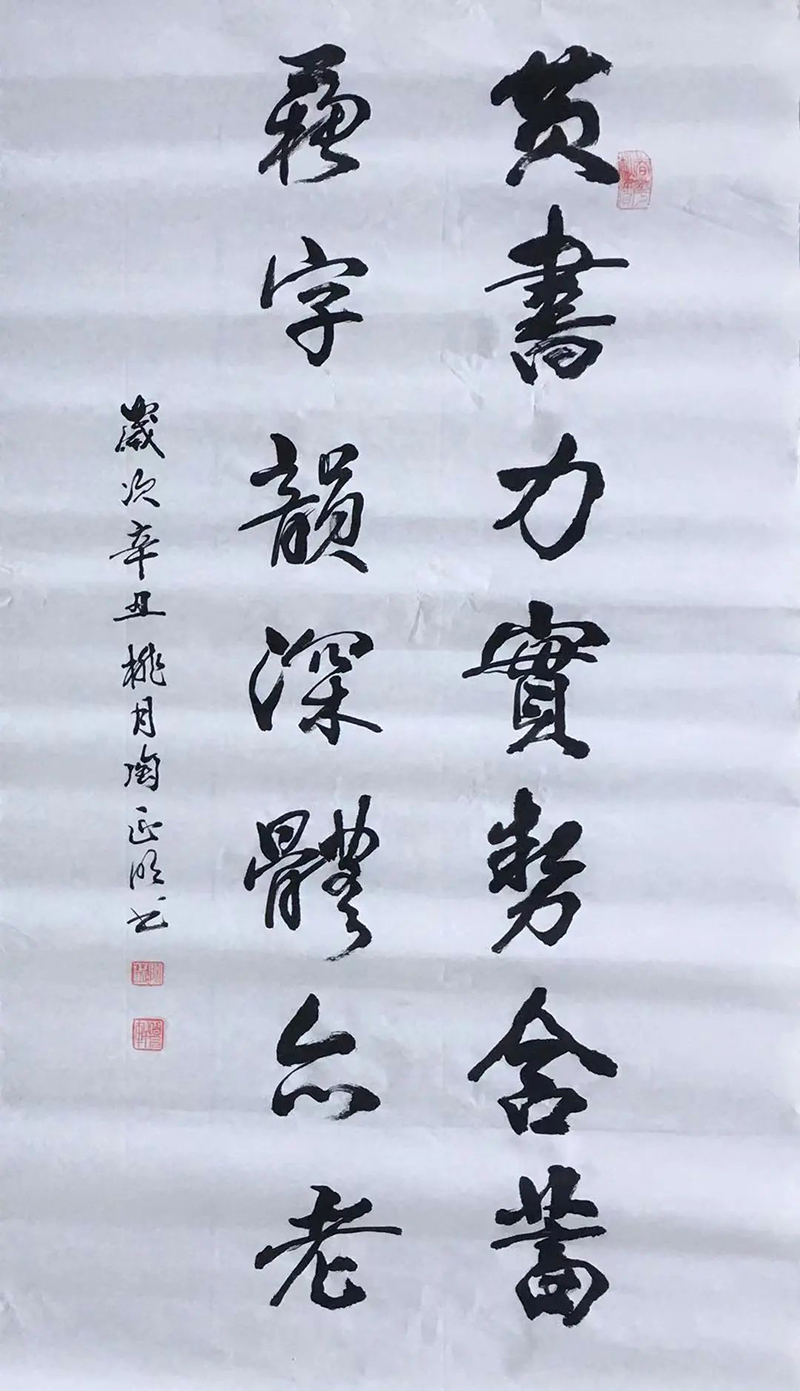 黃書力實勢含蓄
蘇字韻深體亦老
歲次辛丑桃月陶正明书